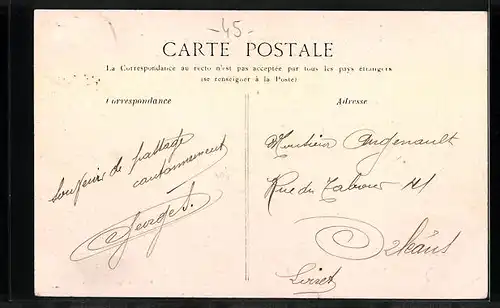 -45-
CARTE POSTALE
La Correspondance au recto n'est pas acceptée par tous les pays étrangers
(se renseigner à la Poste)
Correspondance
Adresse
Souvenir de passage
cantonnement
Georges.
Monsieur Augenault
Rue du Tabour 121
Orléans
Loiret